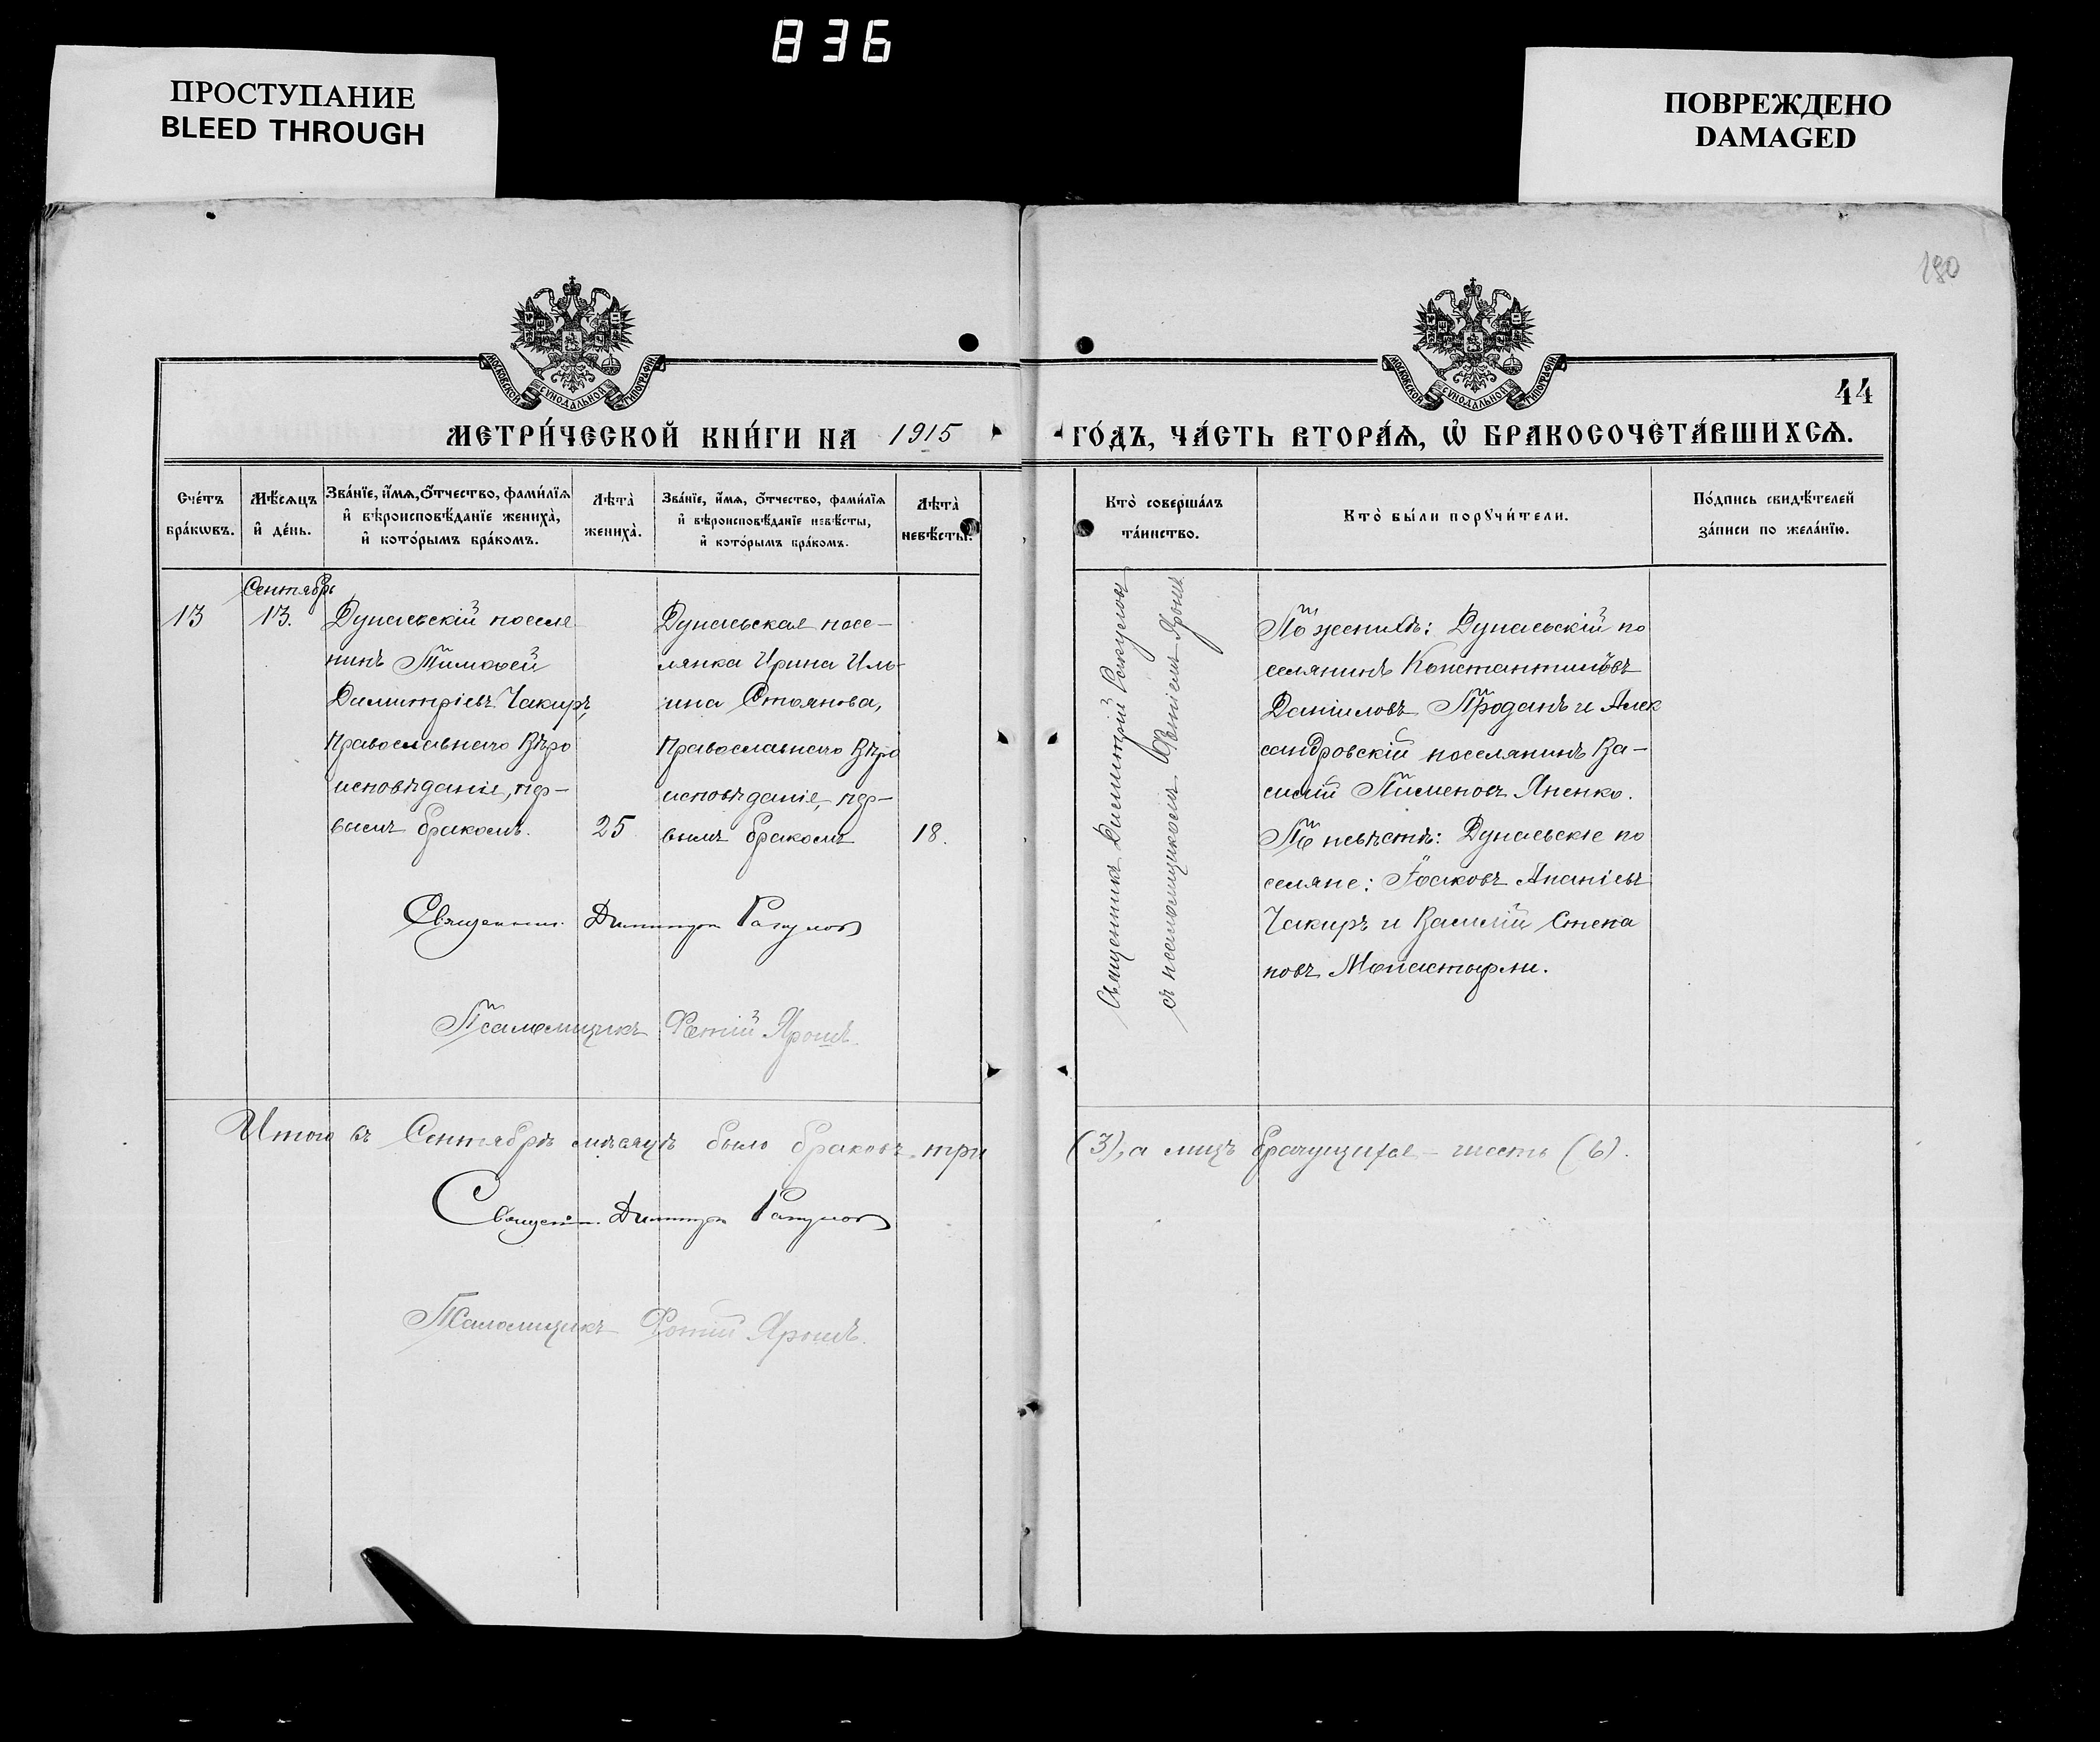 836
ПРОСТУПАНИЕ
BLEED THROUGH
ПОВРЕЖДЕНО
DAMAGED
190
МОСКОВСКОЙ СѴНОДАЛЬНОЙ ТИПОГРАФІИ
МОСКОВСКОЙ СѴНОДАЛЬНОЙ ТИПОГРАФІИ
44
МЕТРИ́ЧЕСКОЙ КНИ́ГИ НА 1915 ГО́ДЪ, ЧА́СТЬ ВТОРА́Ѧ, Ѽ БРАКОСОЧЕТА́ВШИХСѦ.
Счéтъ
брáкωвъ.
Мѣ́сѧцъ
и҆ дéнь.
Звáнїе, и҆́мѧ, ѻ҆́тчество, фами́лїѧ
и҆ вѣроисповѣ́данїе женихà,
и҆ кото́рымъ брáкомъ.
Лѣтà
женихà.
Звáнїе, и҆́мѧ, ѻ҆́тчество, фами́лїѧ
и҆ вѣроисповѣ́данїе невѣ́сты,
и҆ кото́рымъ брáкомъ.
Лѣтà
невѣ́сты.
Кто̀ соверша́лъ
тáинство.
Кто̀ бы́ли порꙋчи́тели.
По́дпись свидѣ́телей
зáписи по желáнїю.
Сентябрь
13
13.
Дунаевскій поселя
нинъ Тимоѳей
Димитріевъ Чакиръ,
православнаго вѣро
исповѣданія, пер-
вымъ бракомъ.
25
Дунаевская посе-
лянка Ирина Иль-
ина Стоянова,
православнаго вѣро
исповѣданія, пер-
вымъ бракомъ
18.
Священникъ Димитрій Рокулов
съ псаломщикомъ Фотіемъ Ярошъ
По женихѣ: Дунаевскій по
селянинъ Константинъ
Даніиловъ Проданъ и Алек
сандровскій поселянинъ Ва-
силій Пименовъ Яненко.
По невѣстѣ: Дунаевскіе по
селяне: Іоаковъ Ананіевъ
Чакиръ и Василій Степа
новъ Монастырли.
Священник Димитрій
Псаломщикъ Фотій Ярошъ.
Итого въ Сентябрѣ мѣсяцѣ было браковъ три (3), а лицъ брачущихся – шесть (6).
Священник. Димитрій
Псаломщикъ Фотій Ярошъ.